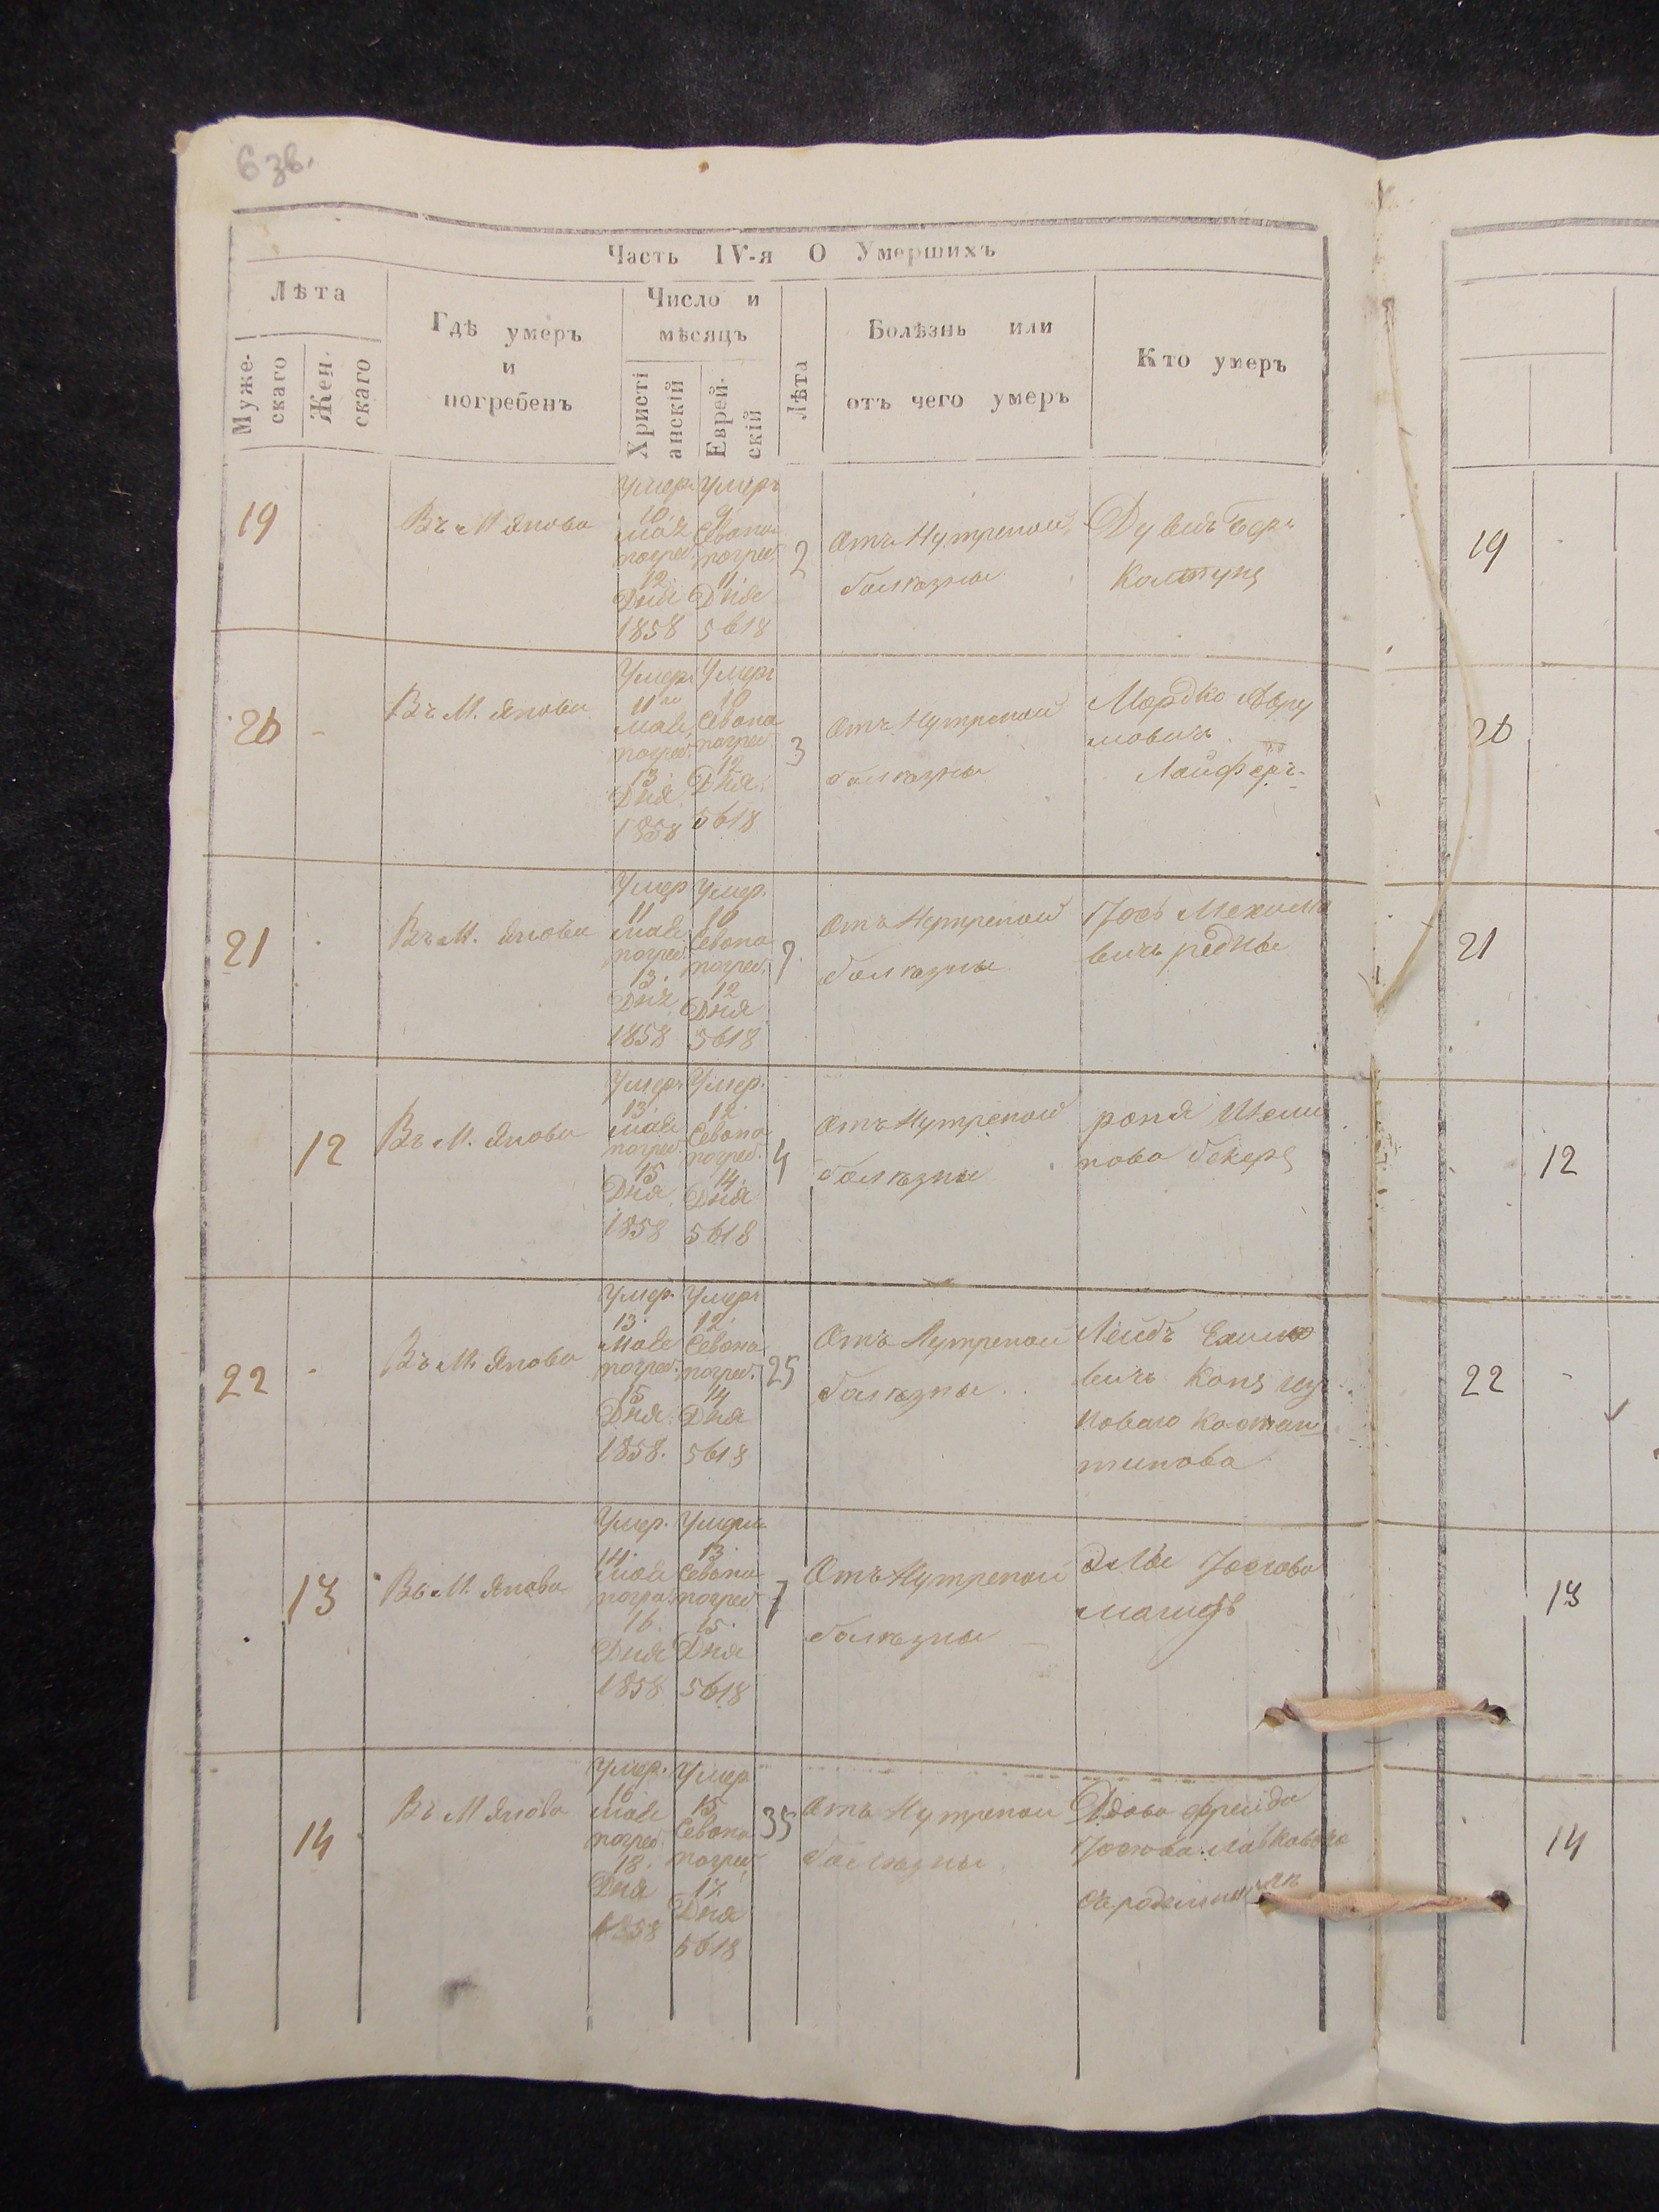 6 зв.
Часть IV-я О Умершихъ
Лѣта
Муже-
скаго
Жен-
скаго
Гдѣ умеръ
и
погребенъ
Число и
мѣсяцъ
Христі
анскій
Еврей-
скій
Лѣта
Болѣзнь или
отъ чего умеръ
Кто умеръ
19
Въ М Янова
Умеръ
10.
мая
погреб.
12.
Дня
1858
Умеръ
9.
Севона
погреб.
11.
Дня
5618
2
Отъ Нутреной
болѣзны
Дувидъ Бер
Калтунъ
20
Въ М. Янова
Умеръ
11го
мая
погреб.
13.
Дня
1858
Умеръ
10
Севона
погреб.
12
Дня
5618
3
Отъ Нутреной
болѣзны
Мордко Авру
мовичъ
Лайферъ
21
Въ М. Янова
Умер
11
мая
погреб.
13.
Дня
1858
Умер.
10
Севона
погреб.
12
Дня
5618
Отъ Нутреной
болѣзны
Іось
вичъ
12
Въ М. Янова
Умеръ
13.
мая
погреб.
15
Дня
1858
Умер.
12.
Севона
погреб.
14.
Дня
5618
4
Отъ Нутреной
болѣзны
22
Въ М. Янова
Умер.
13.
мая
погреб.
15
Дня
1858.
Умеръ
12.
Севона
погреб.
14
Дня
5618
25
Отъ Нутреной
болѣзны
Лейбъ
вичъ
новаго Костан
тинова
13
Въ М. Янова
Умер.
14.
мая
погреб.
16.
Дня
1858
13.
Севона
погреб.
15.
Дня
5618
7
Отъ Нутреной
болѣзны
Іосіова
14
Въ М Янова
Умер.
16
мая
погреб.
18.
Дня
1858
Умер
15
Севона
погреб.
17
Дня
5618
35
Отъ Нутреной
болѣзны
Вдова Фрейда
19
20
21
12
22
13
14